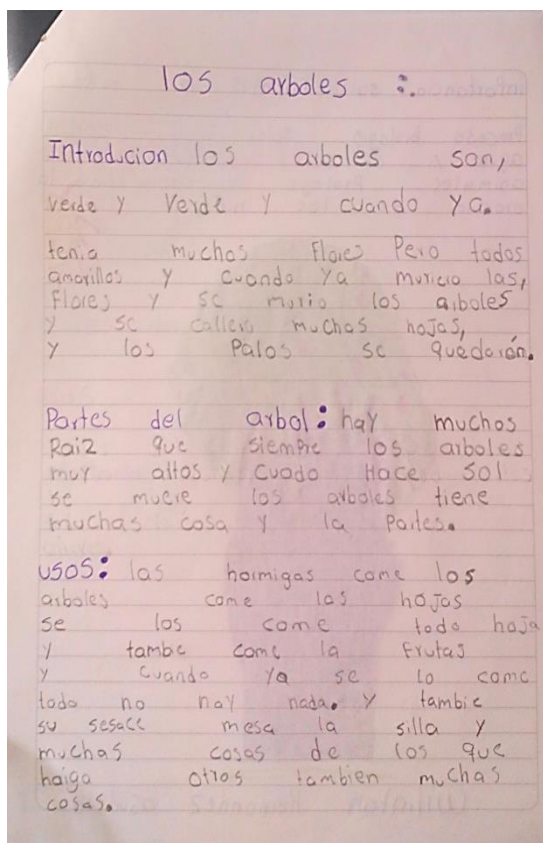 los arboles :.
Introducion los arboles son,
verde y verde y cuando ya.
tenia muchos Flores Pero todos
amarillos y cuando ya muricio las,
Flores y se murio los arboles
y se callero muchos hojas,
y los Palos se quedarón.
Partes del arbol: hay muchos
Raiz que siempre los arboles
muy altos y cuado Hace sol
se muere los arboles tiene
muchas cosa y la Partes.
usos: las hormigas come los
arboles come las hojas
se los come todo hoja
y tambe come la frutas
y cuando ya se lo come
todo no hay nada. y tambie
su sesace mesa la silla y
muchas cosas de los que
haiga otros tambien muchas
cosas.